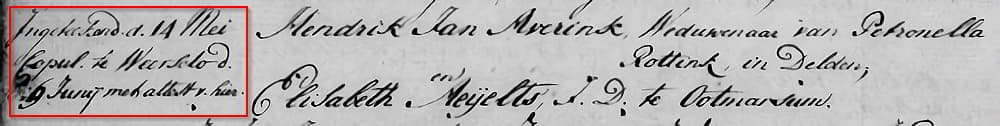 Ingeteekend. d. 14 Mei
Copul. te Weerselo d.
9 Junij met attest v. hier.
Hendrik Jan Averink, Weduwenaar van Petronella
Rottink, in Delden,
en
Elisabeth Meijelts, J. D. te Ootmarsum.